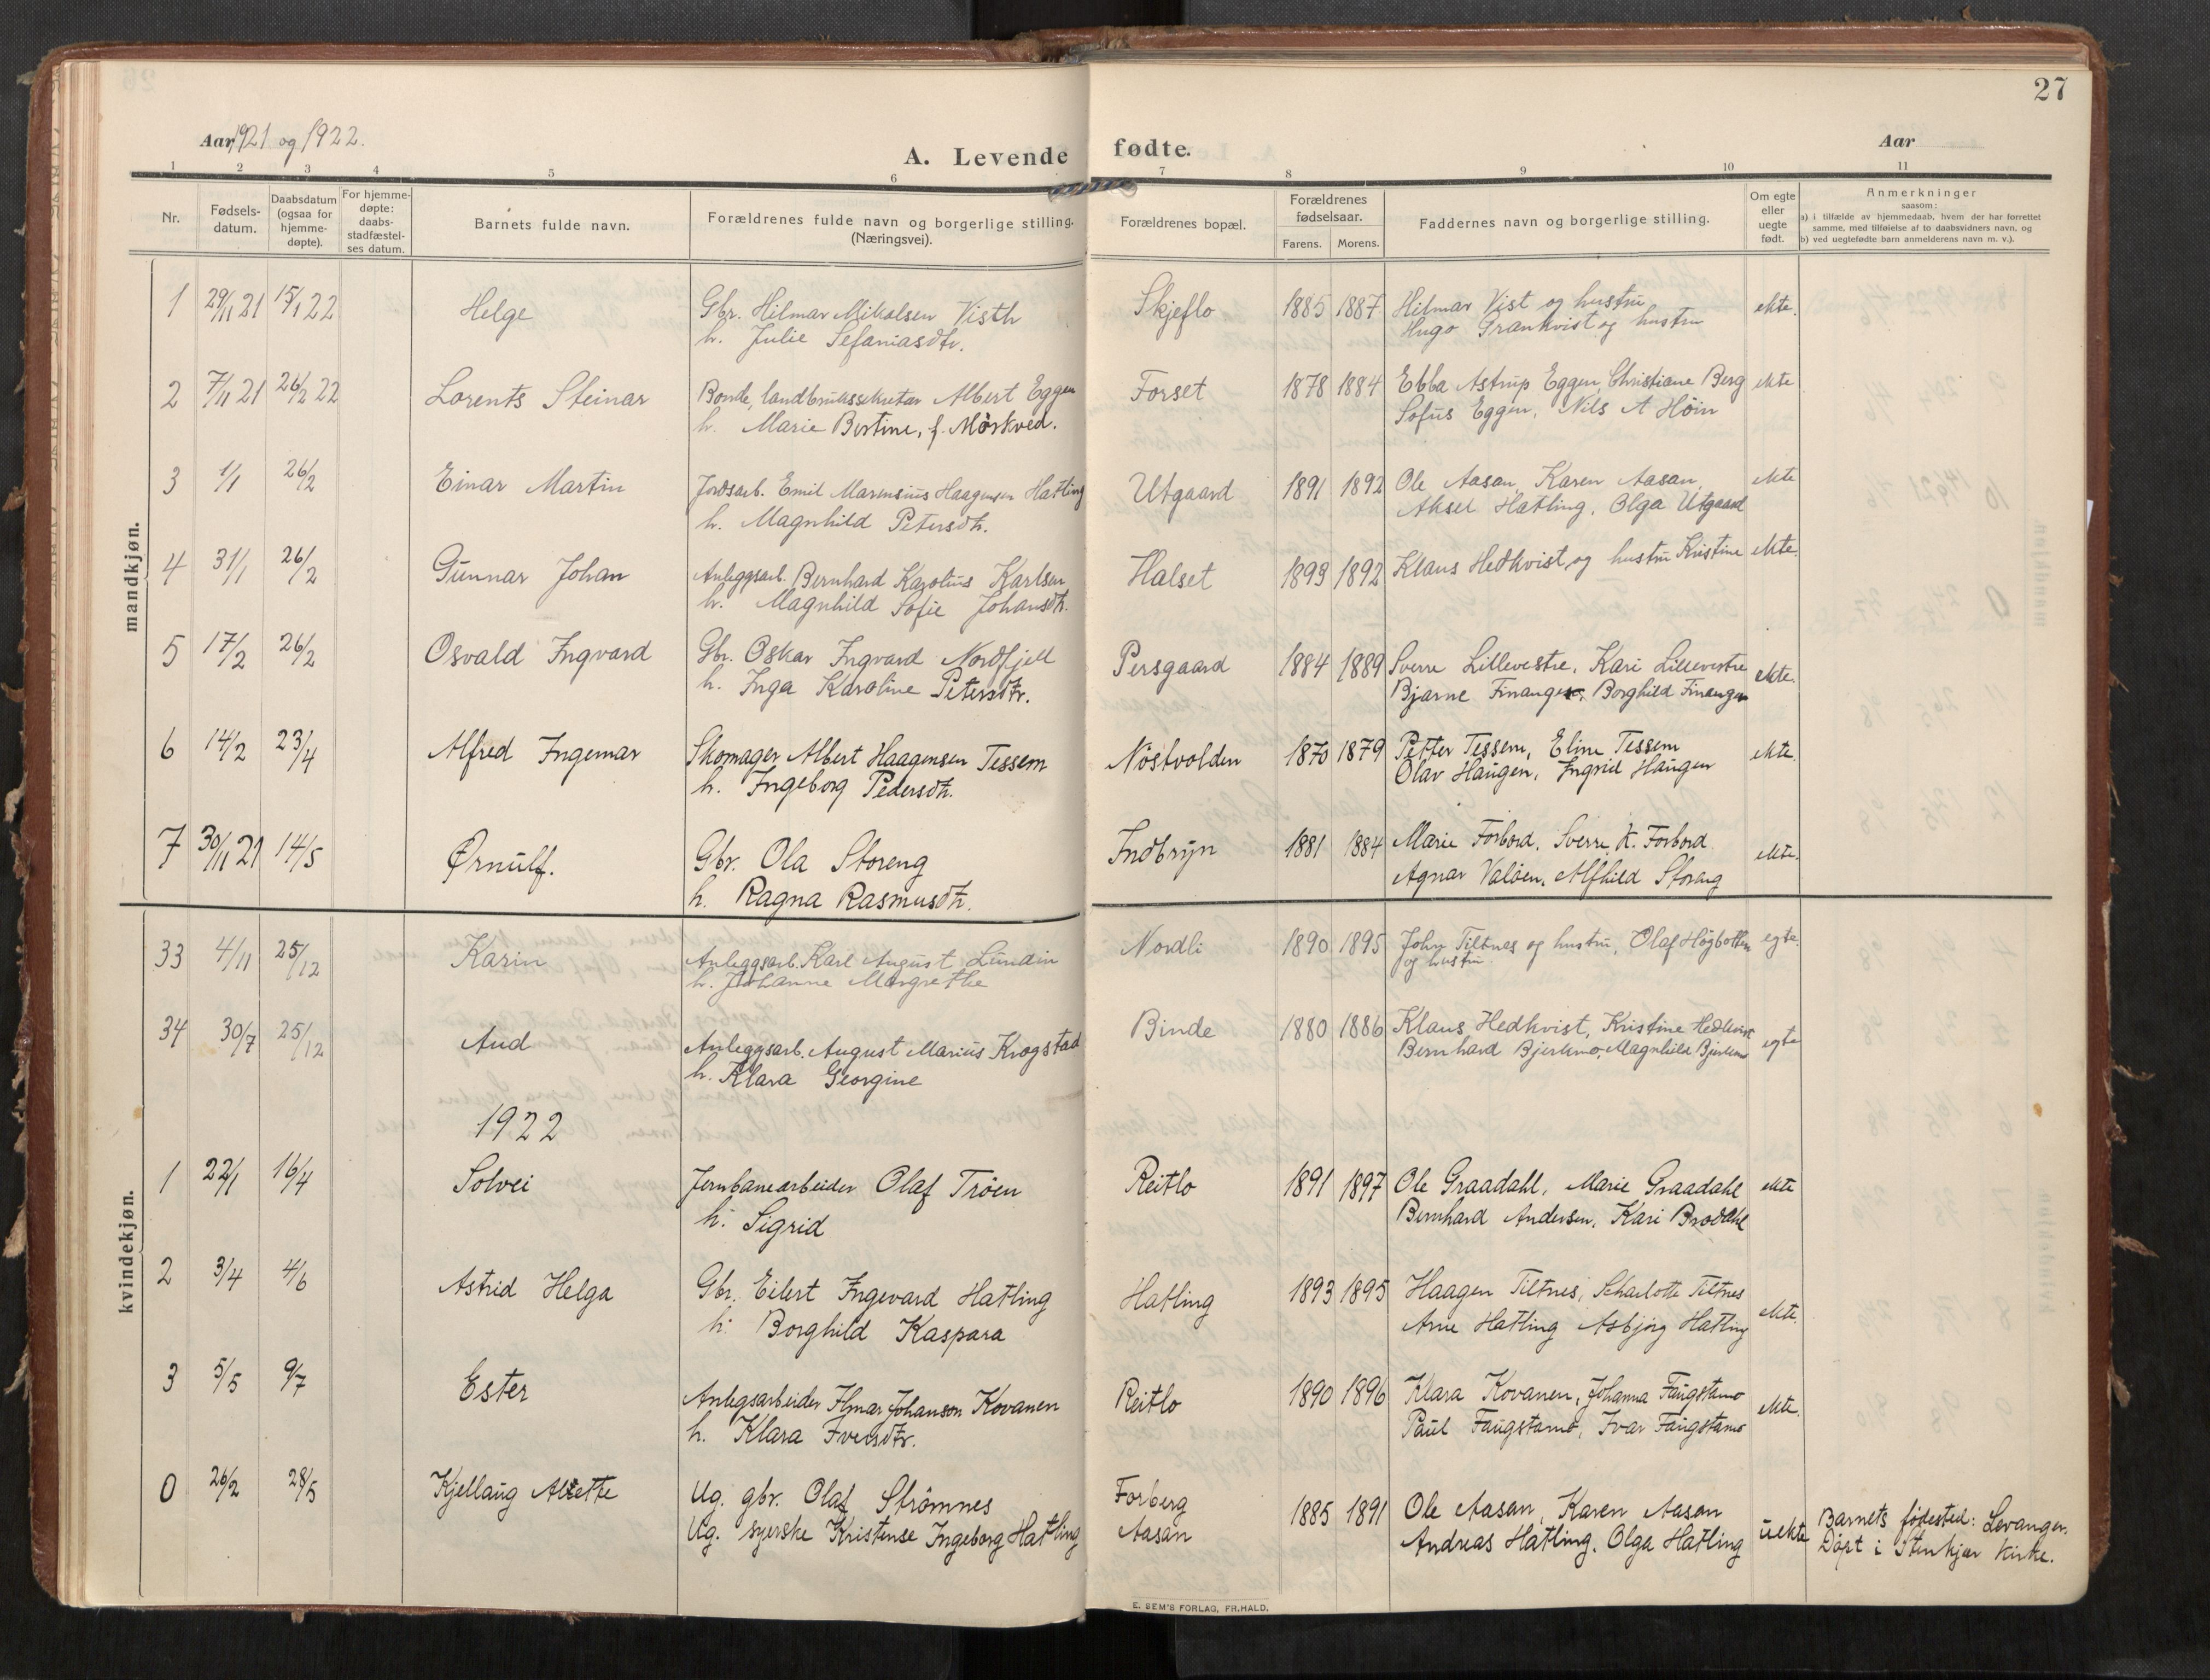 27
Aar 1921 og 1922.
A. Levende fødte.
Aar
1 2 3 4 5 6 7 8 9 10 11
Nr.
Fødsels-
datum.
Daabsdatum
(ogsaa for
hjemme-
døpte).
For hjemme-
døpte:
daabs-
stadfæstel-
ses datum.
Barnets fulde navn.
Forældrenes fulde navn og borgerlige stilling.
(Næringsvei).
Forældrenes bopæl.
Forældrenes
fødselsaar.
Farens. Morens.
Faddernes navn og borgerlige stilling.
Om egte
eller
uegte
født.
Anmerkninger
saasom:
a) i tilfælde av hjemmedaab, hvem der har forrettet
samme, med tilføielse af to daabsvidners navn, og
b) ved uegtefødte barn anmelderens navn m. v.).
mandkjøn.
1 29/11 21 15/1 22 Helge Gbr. Hilmar Mikalsen Visth Skjeflo 1885 1887 Hilmar Vist og hustru ekte.
h. Julie Sefaniasdtr. Hugo Grankvist og hustru
2 7/11 21 26/2 22 Lorents Steinar Bonde, landbrukssekretær Albert Eggen Forset 1878 1884 Ebba Astrup Eggen, Christiane Berg ekte
h. Marie Bertine, f. Mørkved. Sofus Eggen, Nils A Höin
3 1/1 26/2 Einar Martin Jordsarb. Emil Marensius Haagensen Hatling Utgaard 1891 1892 Ole Aasan, Karen Aasan, ekte
h. Magnhild Petersdtr. Aksel Hatling, Olga Utgaard
4 31/1 26/2 Gunnar Johan Anleggsarb. Bernhard Karolius Karlsen Halset 1893 1892 Klaus Hedkvist og hustru Kristine ekte.
h. Magnhild Sofie Johansdtr.
5 17/2 26/2 Osvald Ingvard Gbr. Oskar Ingvard Nordfjell Persgaard 1884 1889 Sverre Lillevestre, Kari Lillevestre ekte.
h. Inga Karoline Petersdtr. Bjarne Finanger, Borghild Finanger
6 14/2 23/4 Alfred Ingemar Skomager Albert Haagensen Tessem Nöstvolden 1870 1879 Petter Tessem, Eline Tessem ekte.
h. Ingeborg Pedersdtr. Olav Haugen, Ingrid Haugen
7 30/11 21 14/5 Ørnulf. Gbr. Ola Storeng Indbryn 1881 1884 Marie Forbord, Sverre K. Forbord ekte.
h. Ragna Rasmusdtr. Agnar Valöen, Alfhild Storeng
kvindekjøn.
33 4/11 25/12 Karin Anleggsarb. Karl August Lundin Nordli 1890 1895 John Tiltnes og hustru, Olaf Högbotten egte.
h. Johanne Margrethe og hustru
34 30/7 25/12 Aud Anleggsarb. August Marius Krogstad Binde 1880 1886 Klaus Hedkvist, Kristine Hedkvist egte
h. Klara Georgine Bernhard Bjerkmo, Magnhild Bjerkmo
1922
1 22/1 16/4 Solvei Jernbanearbeider Olaf Tröen Reitlo 1891 1897 Ole Graadahl, Marie Graadahl ekte
h. Sigrid Bernhard Andersen, Kari Brodahl
2 3/4 4/6 Astrid Helga Gbr. Eilert Ingevard Hatling Hatling 1893 1895 Haagen Tiltnes, Scharlotte Tiltnes ekte.
h. Borghild Kaspara Arne Hatling Asbjörg Hatling
3 5/5 9/7 Ester Anlegsarbeider Ilmar Johanson Kovanen Reitlo 1890 1896 Klara Kovanen, Johanna Faugstamo ekte.
h. Klara Iversdtr. Paul Faugstamo, Ivar Faugstamo
0 26/2 28/5 Kjellaug Alette Ug. gbr. Olaf Strömnes Forberg 1885 1891 Ole Aasan, Karen Aasan uekte Barnets födested: Levanger.
Ug. syerske Kristense Ingeborg Hatling Aasan Andreas Hatling, Olga Hatling Döpt i Stenkjær kirke.
E. SEM'S FORLAG, FR.HALD.